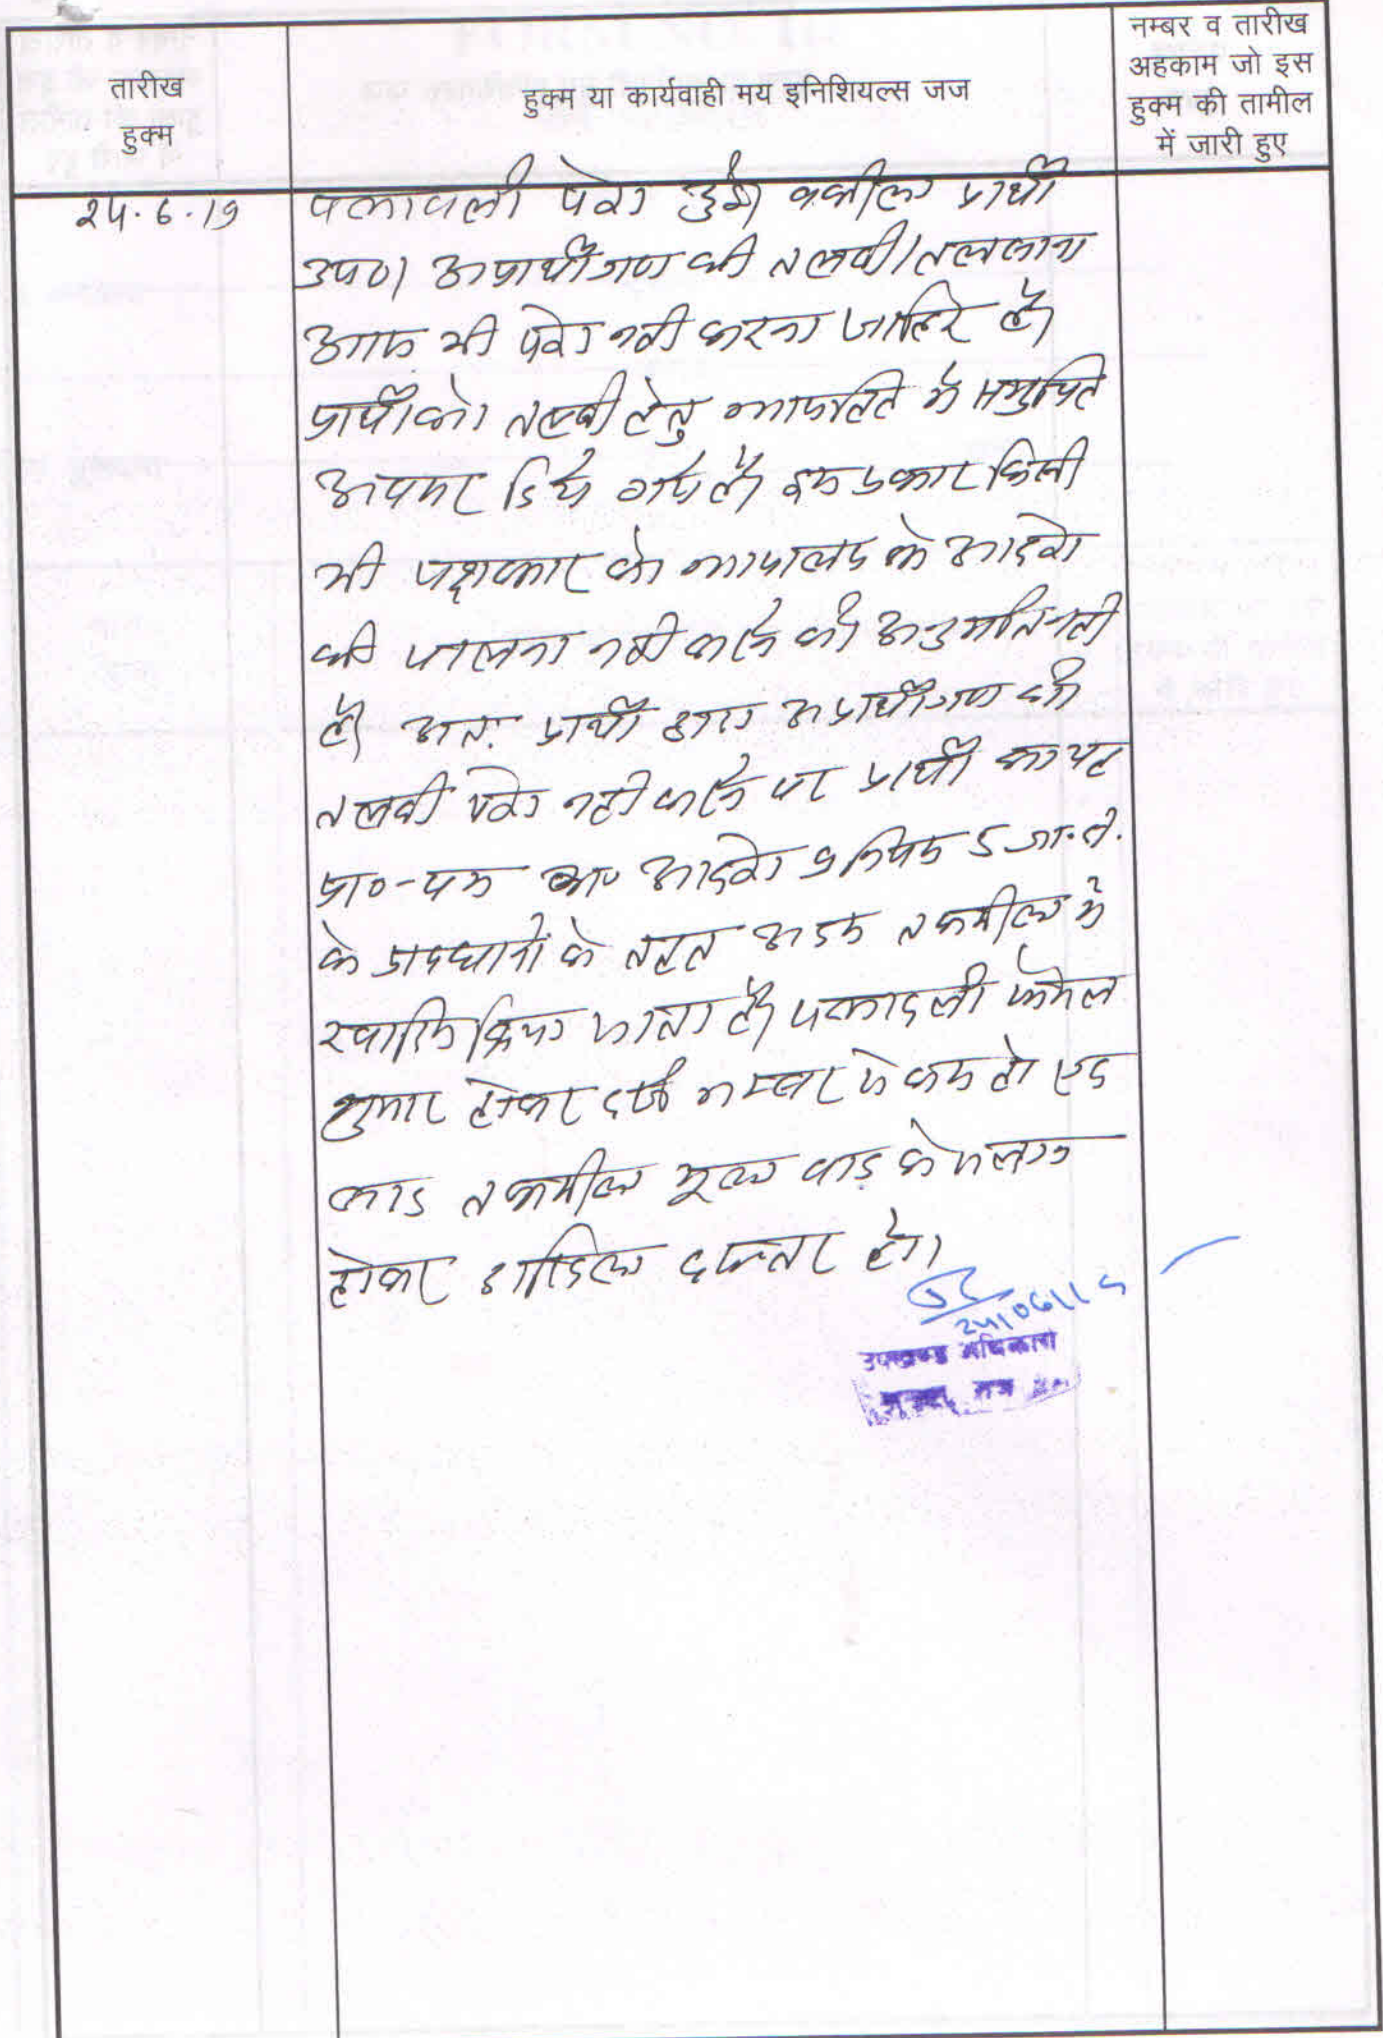 तारीख
हुक्म
हुक्म या कार्यवाही मय इनिशियल्स जज
नम्बर व तारीख
अहकाम जो इस
हुक्म की तामील
में जारी हुए
24.6.19
पत्रावली पेश हुई। वकील प्रार्थी
उप०। अप्रार्थीगण की तलबी/तलबाना
आज भी पेश नही करना जाहिर है।
प्रार्थी को तलबी हेतु न्यायहित मे समुचित
अवसर दिये गये है। इस प्रकार किसी
भी पक्षकार को न्यायालय के आदेश
की पालना नही करने की अनुमति नही
है। अतः प्रार्थी द्वारा अप्रार्थीगण की
तलबी पेश नही करने पर प्रार्थी का यह
प्रा०-पत्र अ० आदेश 9 नियम 5 जा.दी.
के प्रावधानो के तहत अदम तकमील मे
खारिज किया जाता है। पत्रावली फैसल
शुमार होकर दर्ज नम्बर से कम हो एवं
बाद तकमील मूल वाद के संलग्न
होकर दाखिल दफ्तर हो।
24/06/19
उपखण्ड अधिकारी